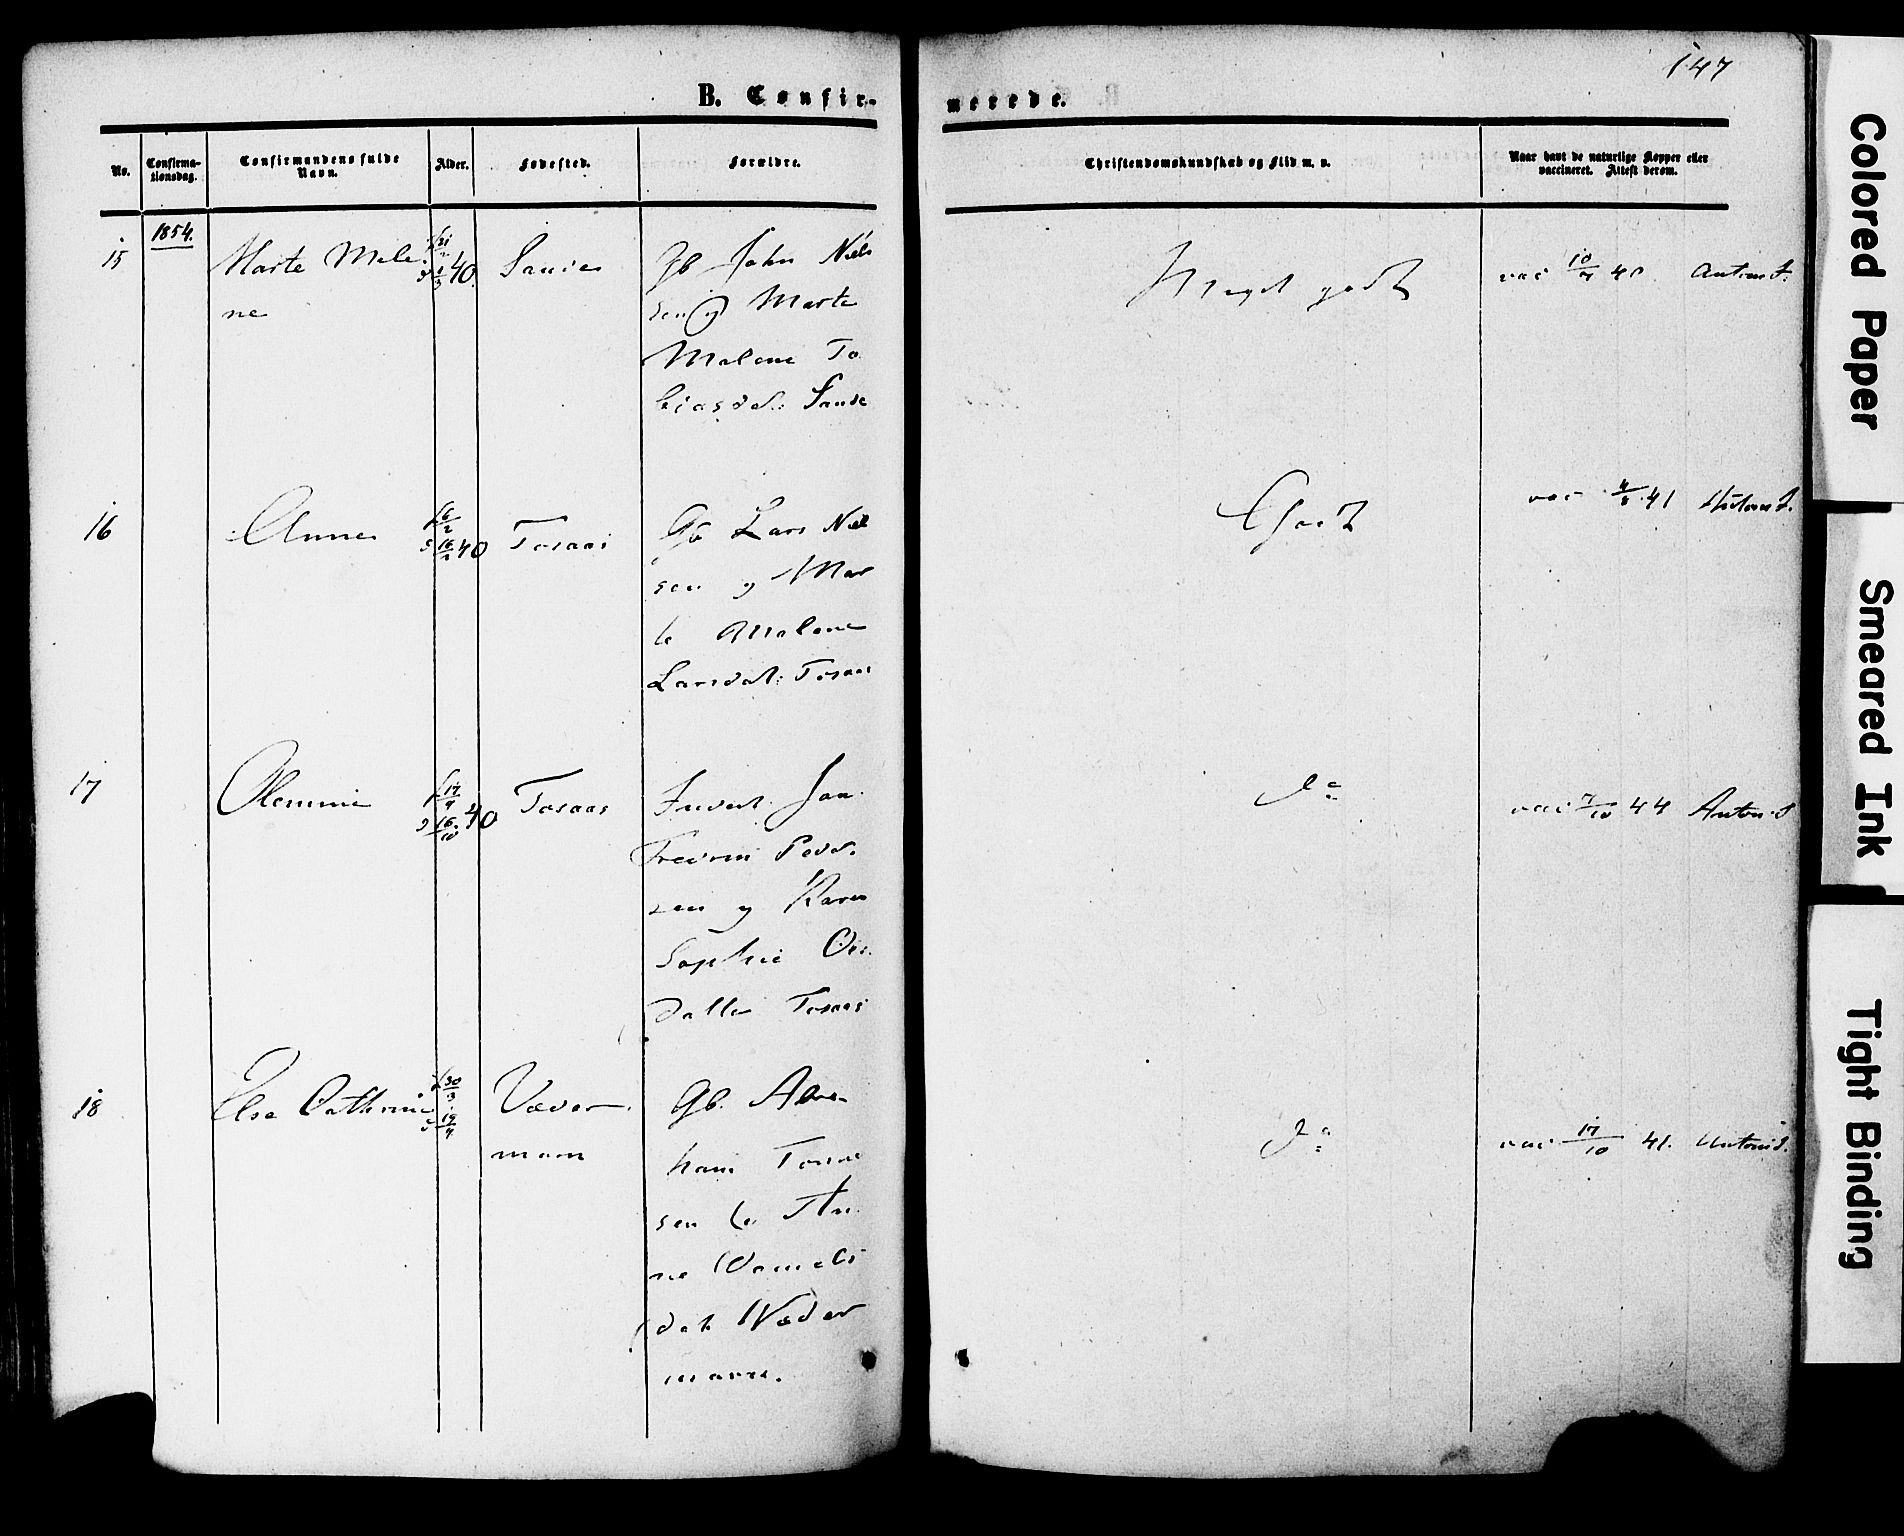 147
B. Confir-
merede.
No.
Confirma-
tionsdag.
Confirmandens fulde
Navn.
Alder.
Fødested.
Forældre.
Christendomskundskab og Flid m. v.
Naar havt de naturlige Kopper eller
vaccineret. Attest derom.
1854.
15
Marte Male
ne
40
Gb John Niels
sen og Marte
Malene To
biasdat: Sande
Meget godt
vac 10/7 40.
16
Anne
f 6/2
40
Tosaas
Gb Lars Niel
sen og Mar
te Malene
Larsdat: Tosaas
Godt
vac 41
17
Olemine
f 17/9
d 16/10 40
Tosaas
Jan
Peder
sen og Karen
Sophie
datter Tosaas
do
vac 7/10 44 Anton S
18
Else Cathrine
f 30/3
19/4
Væder
moen
Gb. Abra
ham Tobia
sen & An
ne Daniels
dat Væder
moen.
do
vac 17/10 41. Anton S.
Colored Paper
Smeared Ink
Tight Binding